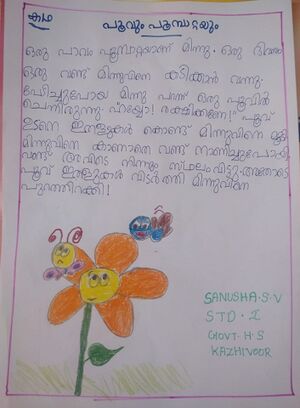 കഥ
പൂവും പൂമ്പാറ്റയും
ഒരു പാവം പൂമ്പാറ്റയാണ് മിന്നു. ഒരു ദിവസം
ഒരു വണ്ട് മിന്നുവിനെ കടിക്കാൻ വന്നു.
പേടിച്ചുപോയ മിന്നു പറന്ന് ഒരു പൂവിൽ
ചെന്നിരുന്നു. ഹയ്യോ! രക്ഷിക്കണേ!" പൂവ്
ഉടനെ ഇതളുകൾ കൊണ്ട് മിന്നുവിനെ മൂടി
മിന്നുവിനെ കാണാതെ വണ്ട് നാണിച്ചുപോയി.
വണ്ട് അവിടെ നിന്നും സ്ഥലംവിട്ടു. അതോടെ
പൂവ് ഇതളുകൾ വിടർത്തി മിന്നുവിനെ
പുറത്തിറക്കി!
SANUSHA.S.V
STD - I
GOVT. H.S
KAZHIVOOR